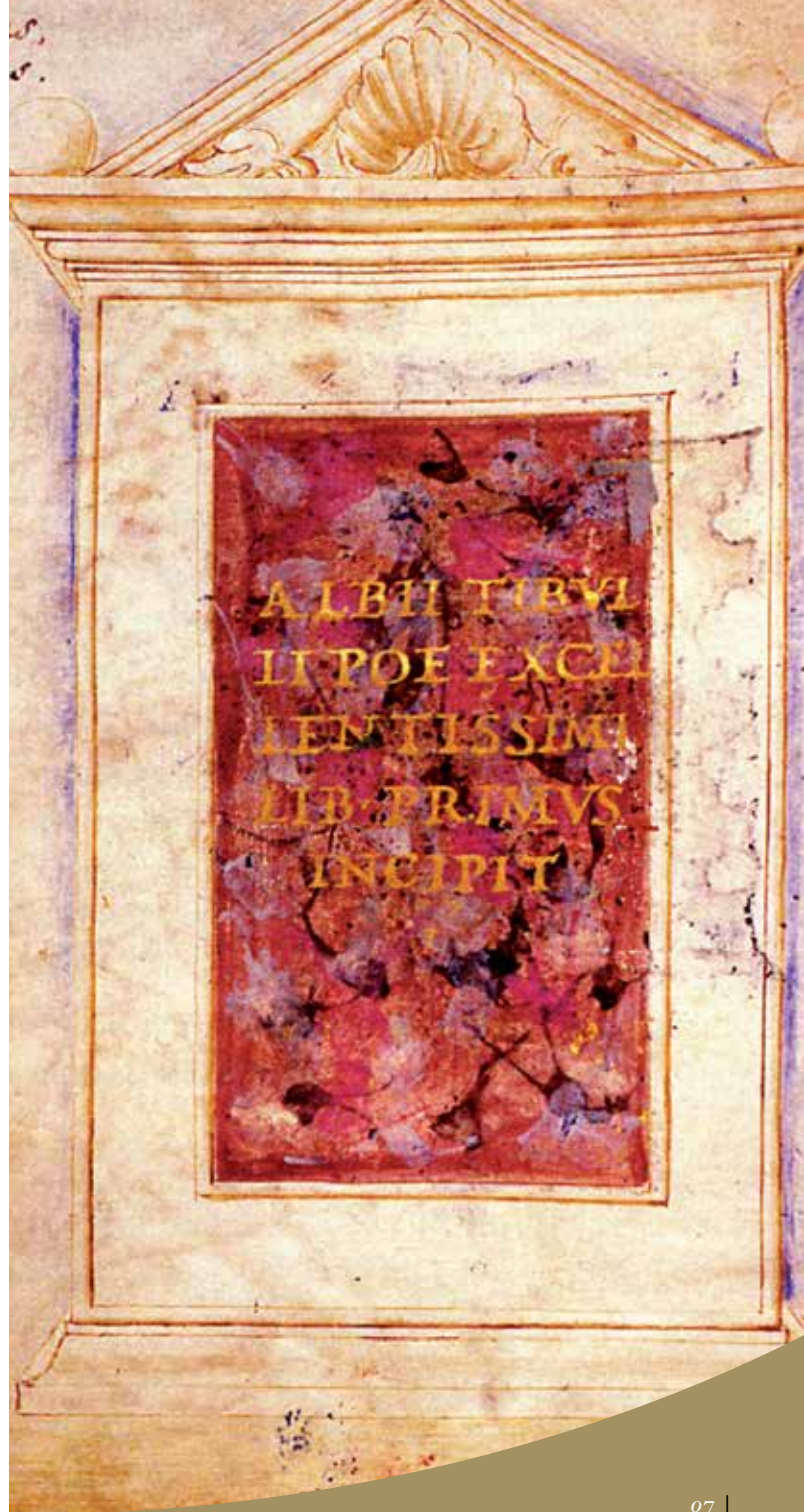 ALBII TIBVL
LI POE EXCEL
LENTISSIMI
LIB·PRIMVS
INCIPIT
07